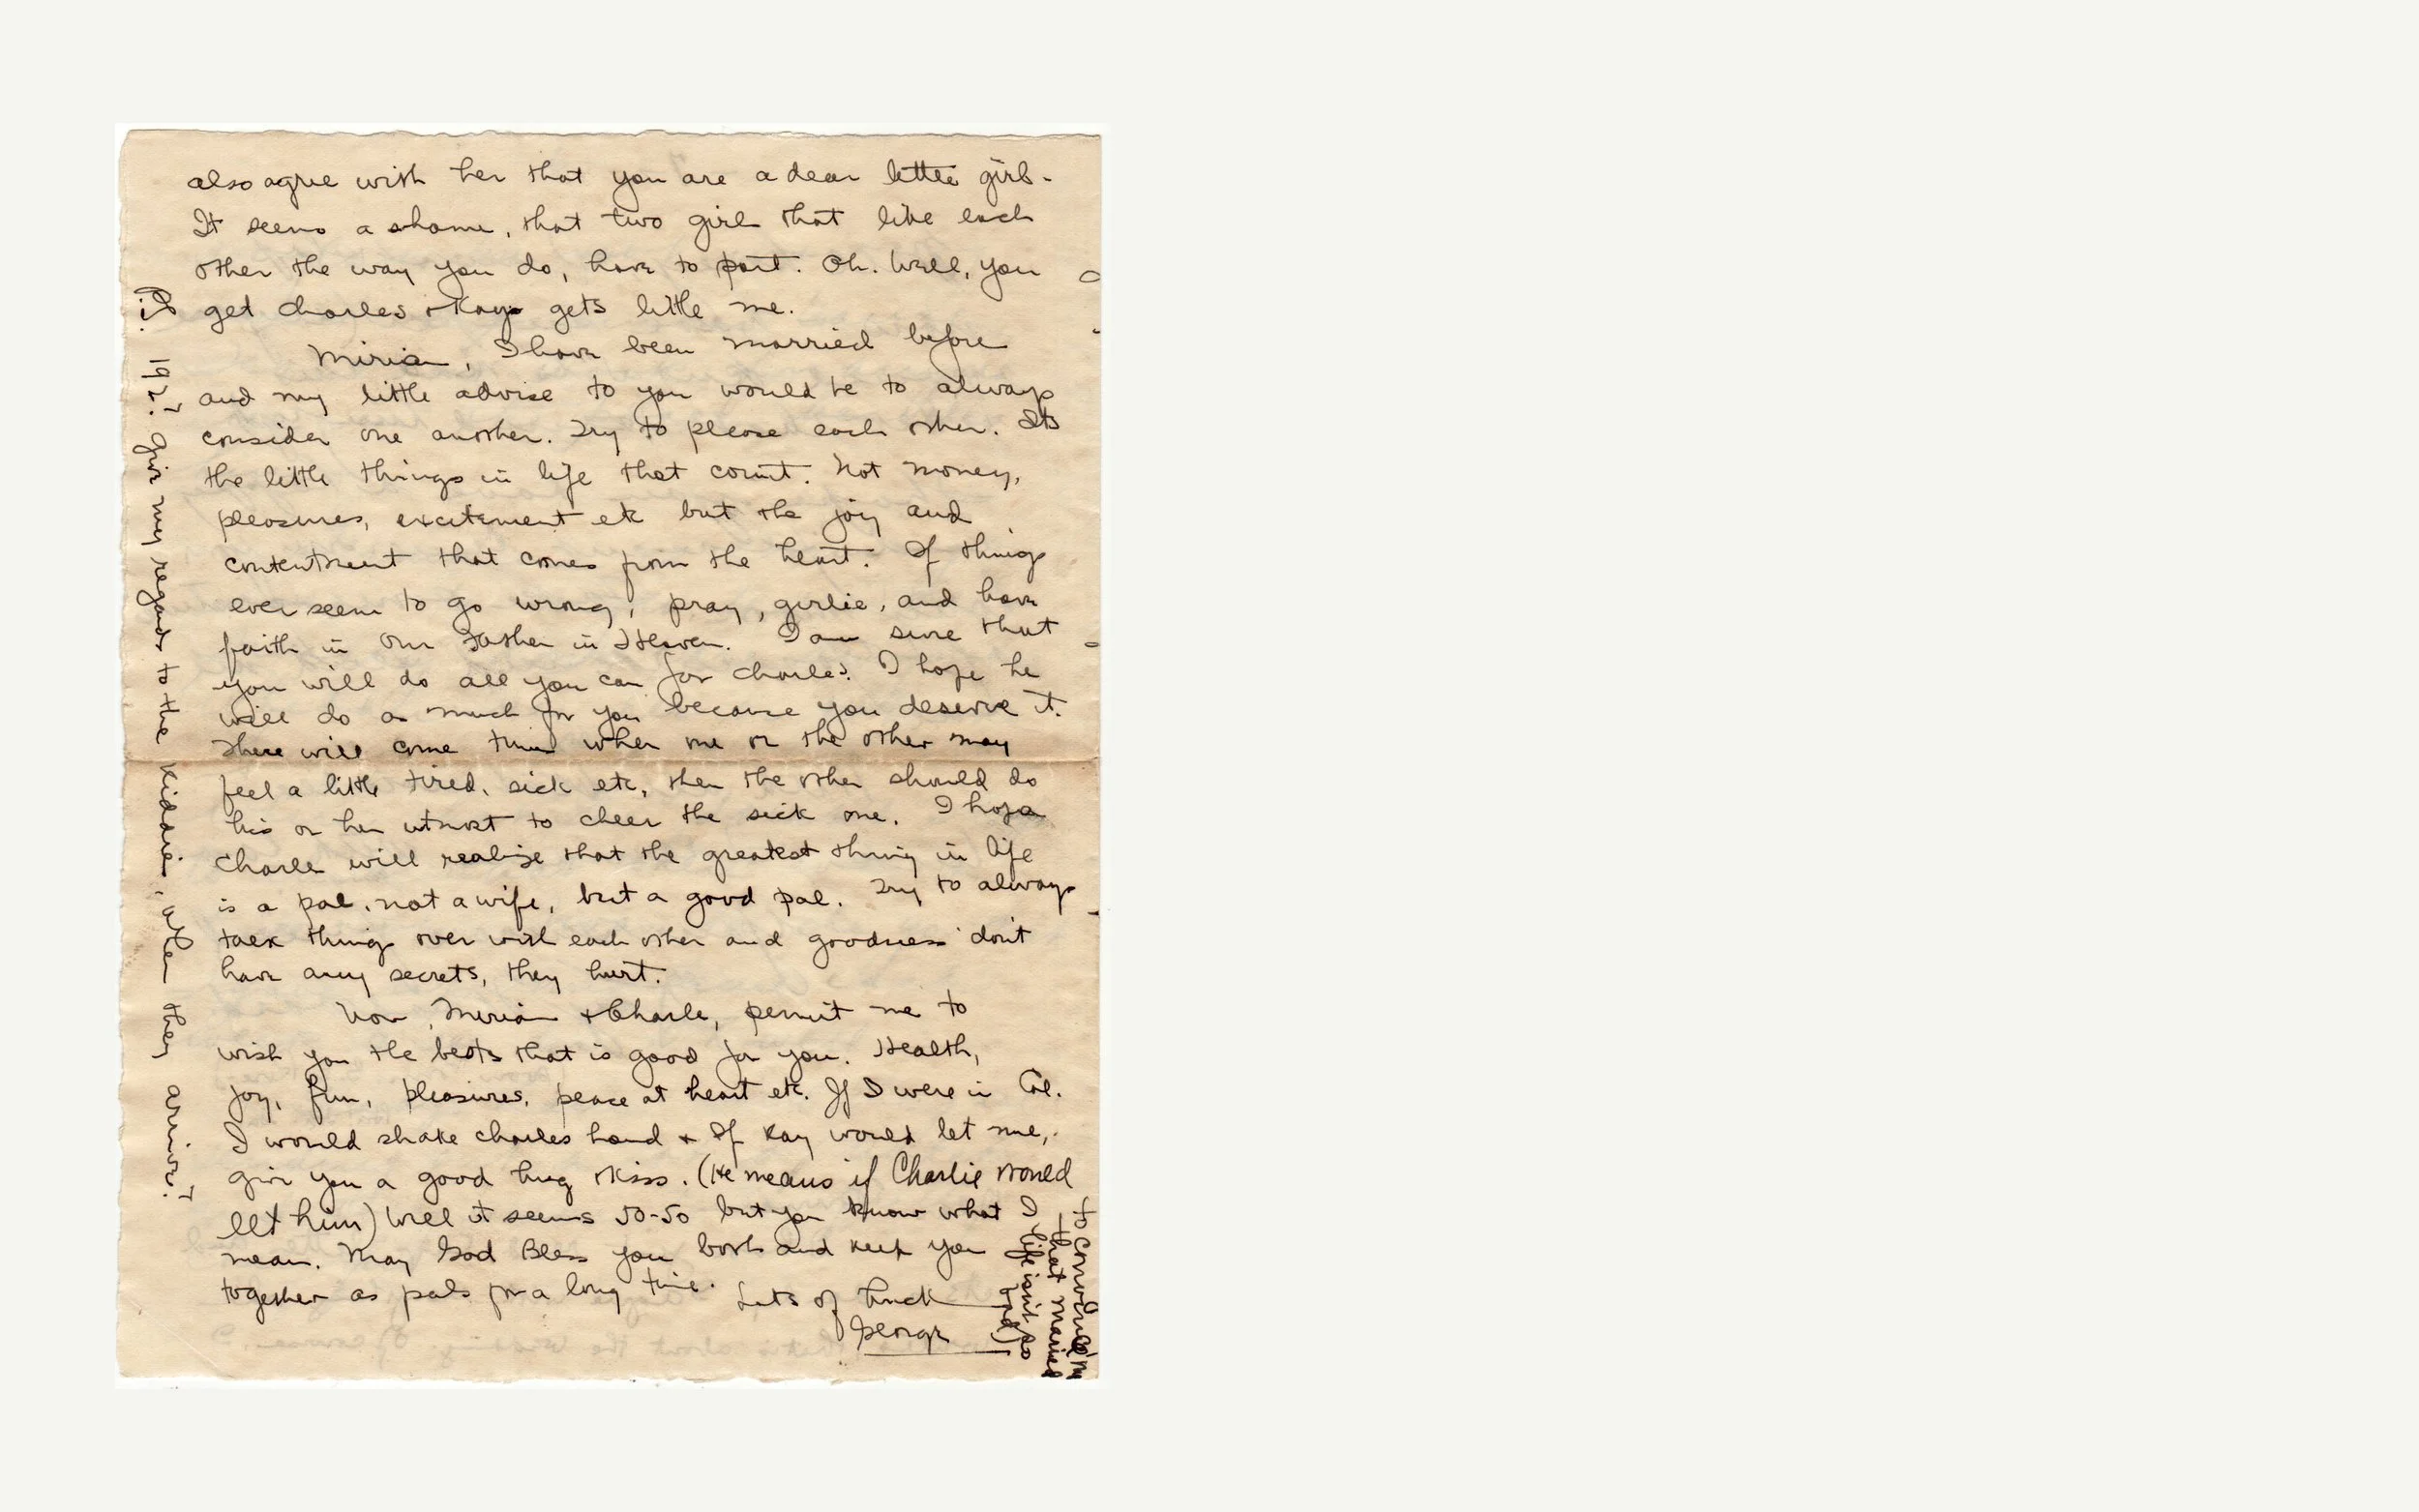 also agree with her that you are a dear little girl.
It seems a shame, that two girl that like each
other the way you do, have to part. Oh. Well, you
get Charles & Kay gets little me.
Miriam, I have been married before
and my little advise to you would be to always
consider one another. Try to please each other. Its
the little things in life that count. Not money,
pleasures, excitement etc but the joy and
contentment that comes from the heart. If things
ever seem to go wrong; pray, girlie, and have
faith in Our Father in Heaven. I am sure that
you will do all you can for Charles. I hope he
will do as much for you because you deserve it.
There will come time when one or the other may
feel a little tired, sick etc, then the other should do
his or her utmost to cheer the sick one. I hope
Charles will realize that the greatest thing in life
is a pal, not a wife, but a good pal. Try to always
talk things over with each other and goodness don't
have any secrets, they hurt.
Now, Miriam & Charle, permit me to
wish you the bests that is good for you. Health,
joy, fun, pleasures, peace at heart etc. If I were in Cal.
I would shake Charles hand & If Kay would let me,
give you a good hug & kiss. (He means if Charlie would
let him) Well it seems 50-50 but you know what I
mean. May God Bless you both and keep you
together as pals for a long time.
Lots of Luck
George
give my regards to the kiddies, when they arrive.
to convince
that married
life isn't so